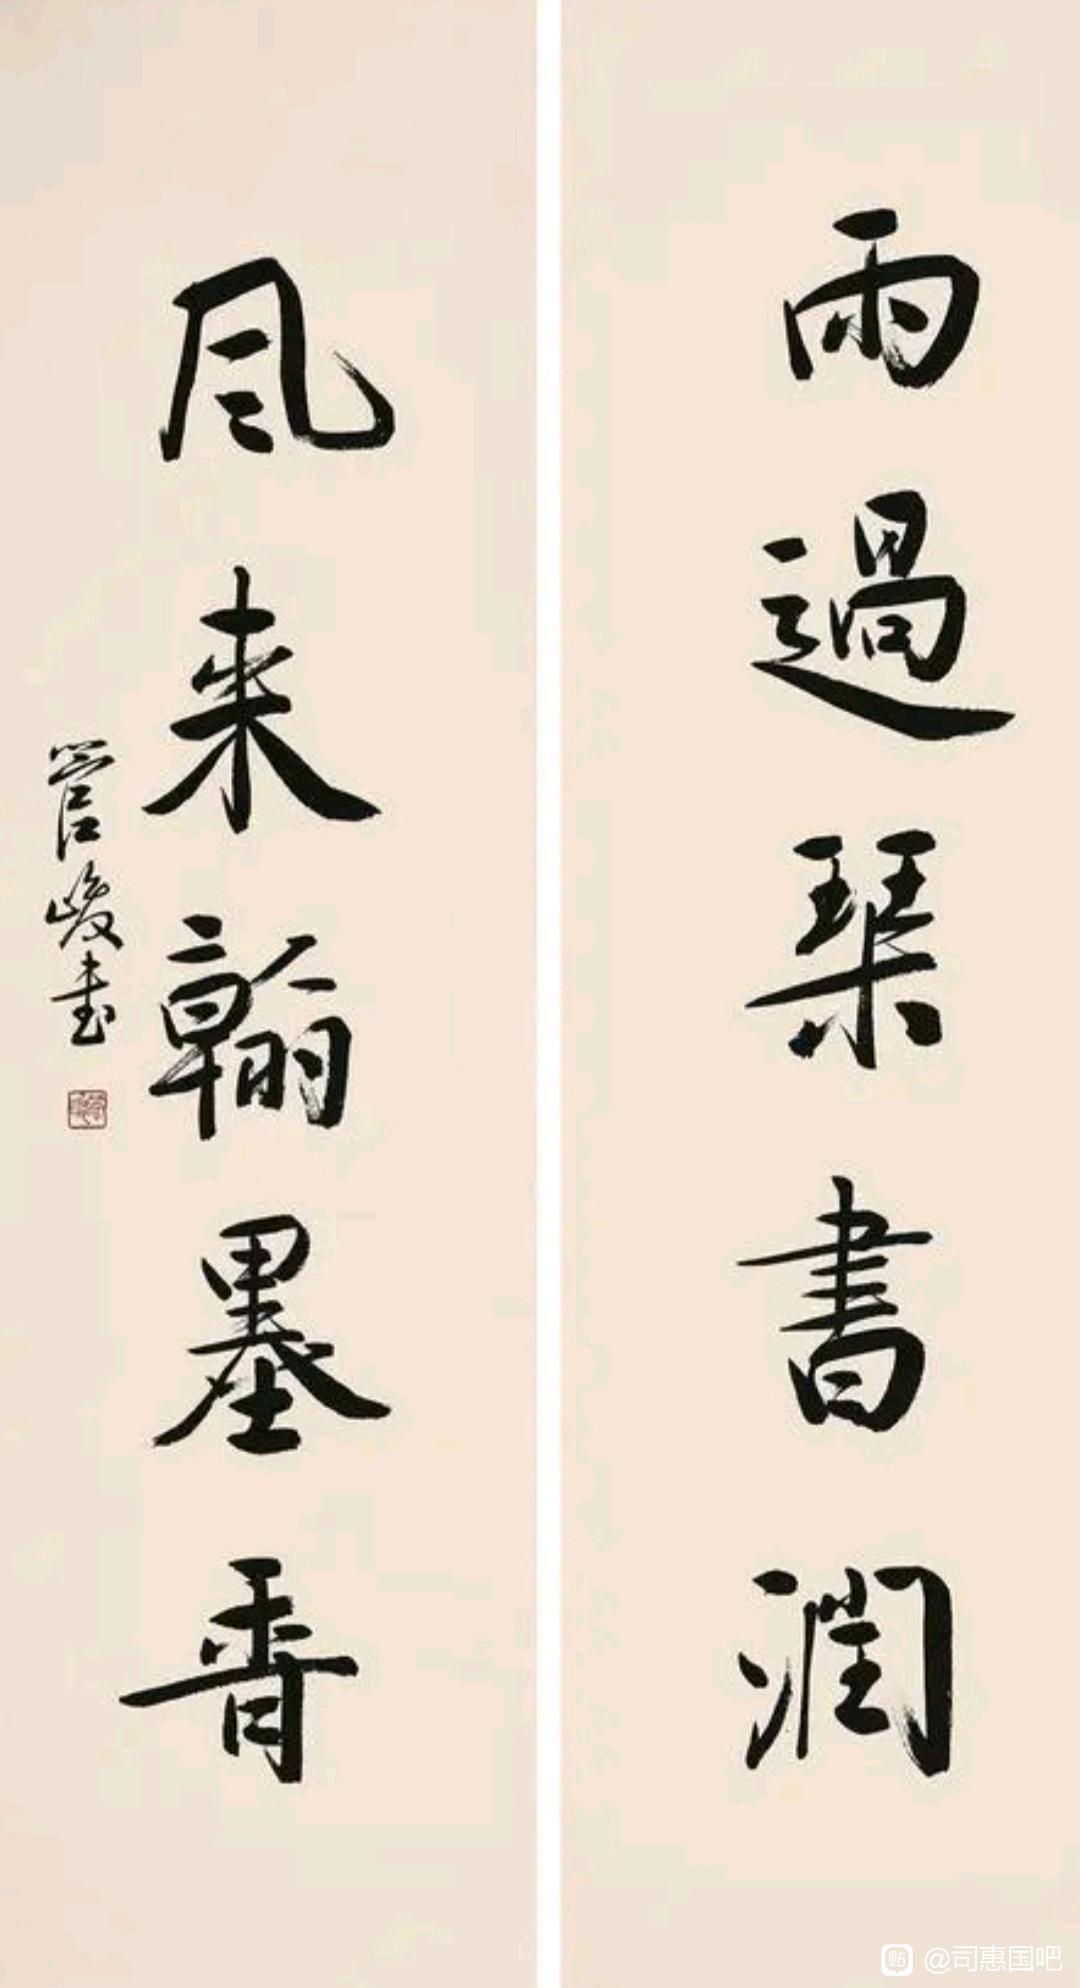 雨過琴書潤
風来翰墨香
管峻書
@司惠国吧